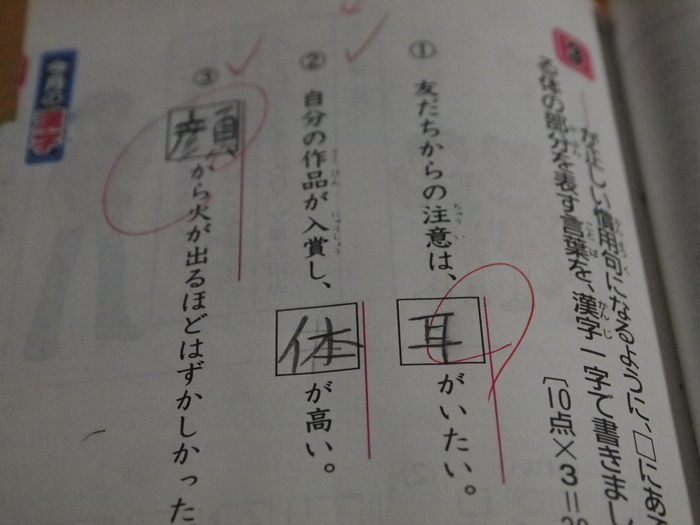 が正しい慣用句になるように、□にあ
る体の部分を表す言葉を、漢字一字で書きまし
〔10点×3＝30
① 友だちからの注意は、耳がいたい。
② 自分の作品が入賞し、体が高い。
③ 顔から火が出るほどはずかしかった
今月の漢字